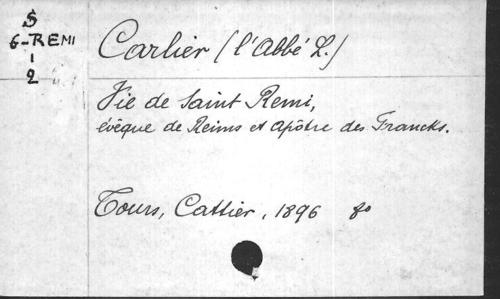 S
6-REMI
1
2
Carlier (l'Abbé L.)
Vie de Saint Remi,
évêque de Reims et Apôtre des Francks.
Tours, Cattier, 1896 8o